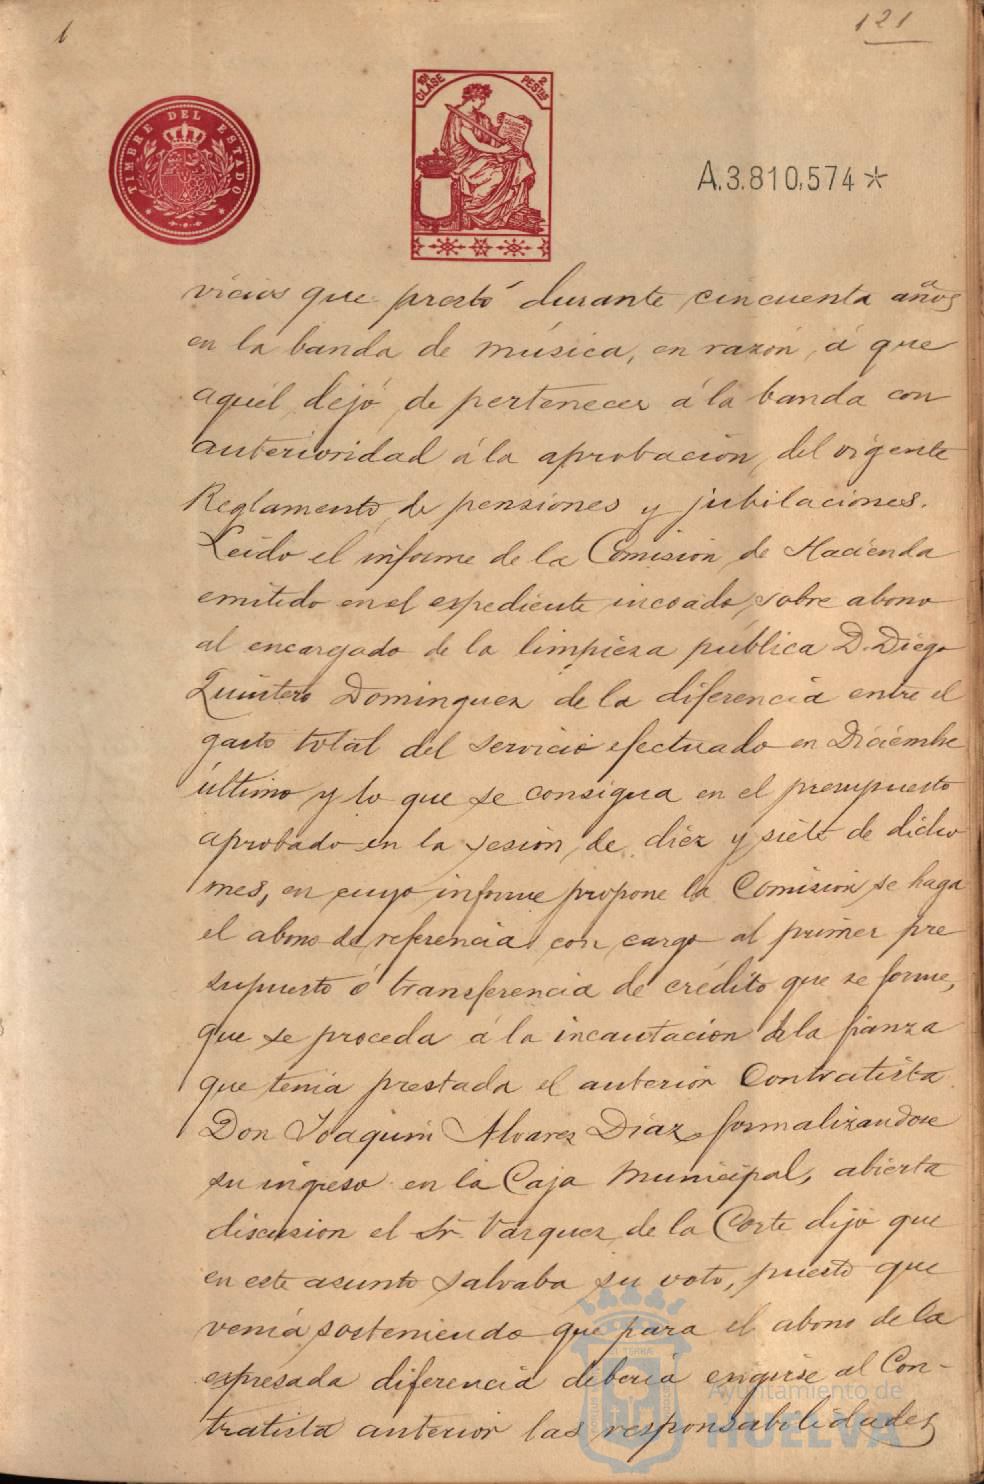 1
121
TIMBRE DEL ESTADO
10ª CLASE
2 PESTAS
A.3.810,574*
vicios que prestó durante cincuenta años
en la banda de música, en razón á que
aquél dejó de pertenecer á la banda con
anterioridad á la aprobación del vigente
Reglamento de pensiones y jubilaciones.
Leido el informe de la Comisión de Hacienda
emitido en el expediente incoado sobre abono
al encargado de la limpieza pública D. Diego
Quintero Dominguez de la diferencia entre el
gasto total del servicio efectuado en Diciembre
último y lo que se consigna en el presupuesto
aprobado en la sesión de diez y siete de dicho
mes, en cuyo informe propone la Comisión se haga
el abono de referencia con cargo al primer pre
supuesto ó transferencia de crédito que se forme,
que se proceda á la incautación de la fianza
que tenia prestada el anterior Contratista
Don Joaquin Alvarez Diaz formalizandose
su ingreso en la Caja Municipal, abierta
discusion el Sr. Vazquez de la Corte dijo que
en este asunto salvaba su voto, puesto que
venia sosteniendo que para el abono de la
expresada diferencia deberia exigirse al Con-
tratista anterior las responsabilidades
Ayuntamiento de
HUELVA